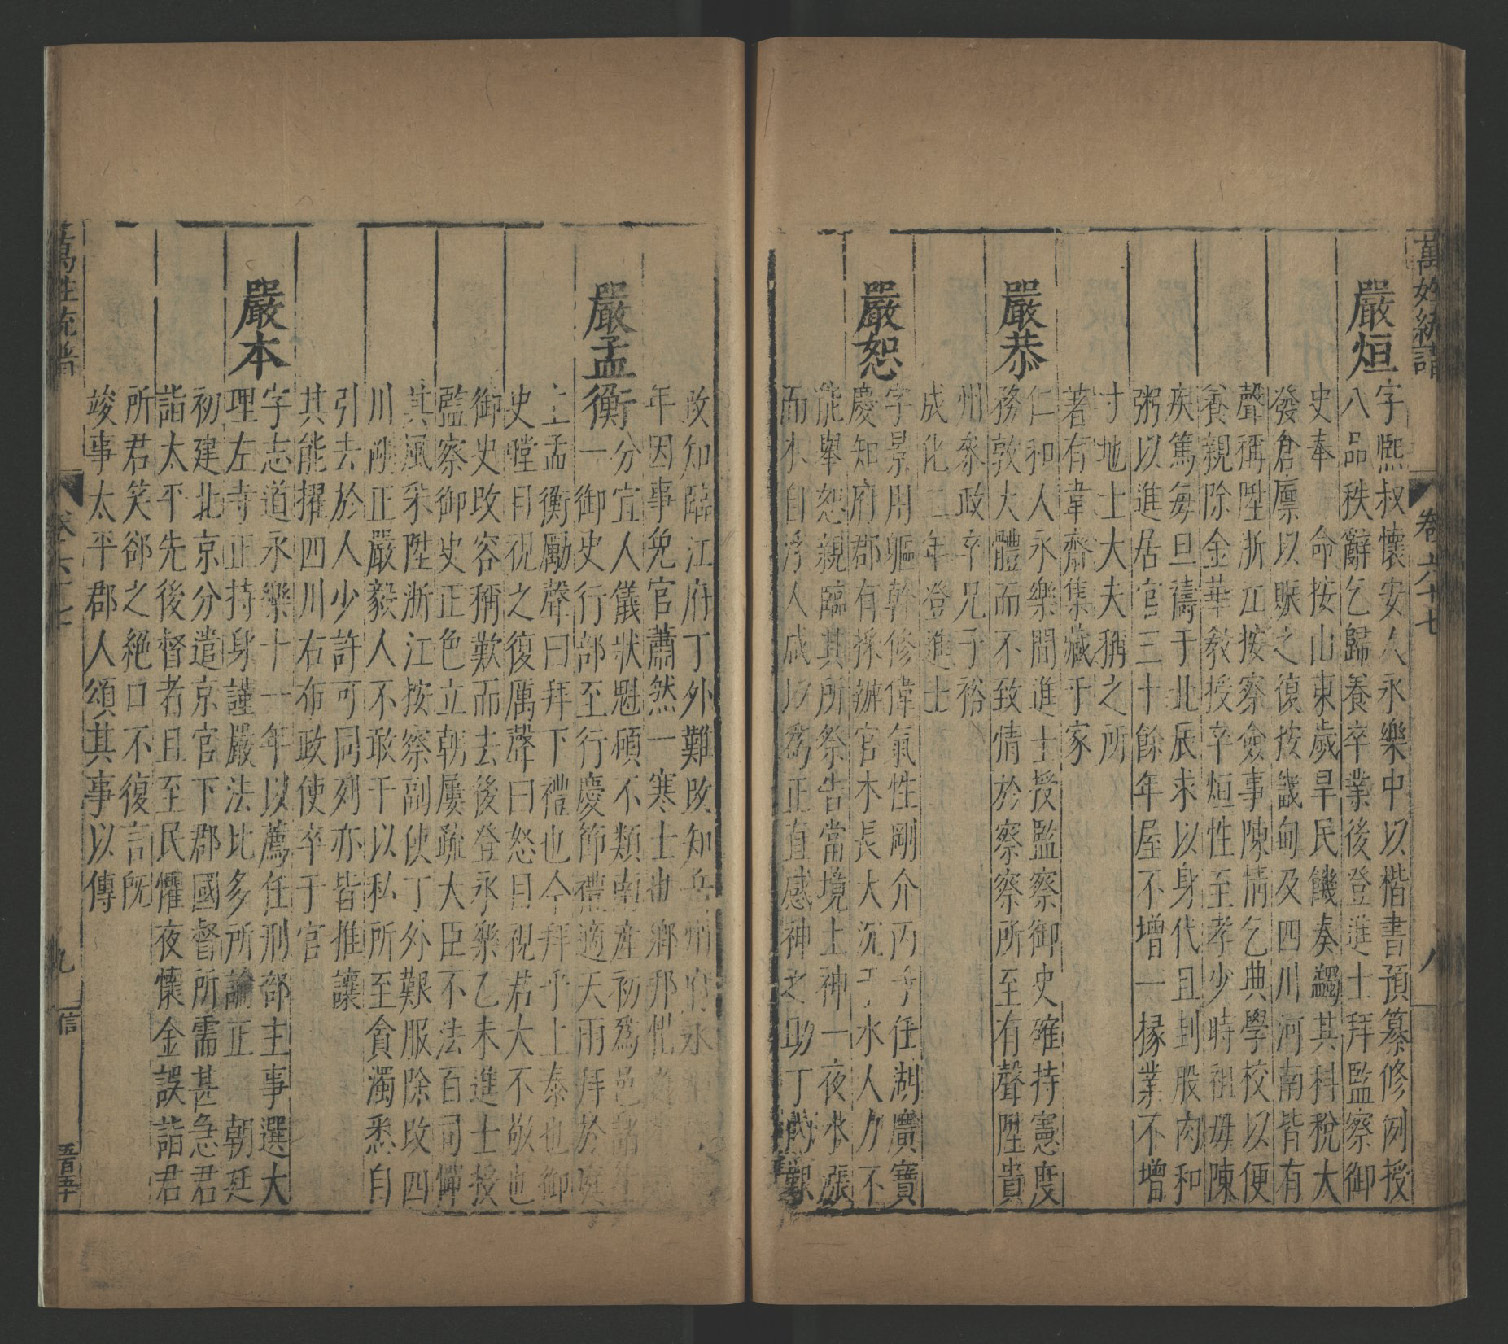 萬姓統譜
卷六十七
八
嚴烜
字熙叔懷安人永樂中以楷書預纂修例授
八品秩辭乞歸養卒業後登進士拜監察御
史奉 命按山東歲旱民饑奏蠲其科稅大
發倉廩以賑之復按畿甸及四川河南皆有
聲稱陞浙江按察僉事陳情乞典學校以便
養親除金華教授卒烜性至孝少時祖母陳
疾篤每旦禱于北辰求以身代且刲股肉和
粥以進居官三十餘年屋不增一椽業不增
寸地士大夫稱之所
著有韋齋集藏于家
嚴恭
仁和人永樂間進士授監察御史確持憲度
務敦大體而不致情於察察所至有聲陞貴
州參政卒兄子裕
成化二年登進士
嚴恕
字景周軀幹修偉氣性剛介丙子任湖廣寶
慶知府郡有採辦官木長大沉于水人力不
能舉恕親臨其所祭告當境土神一夜水漲
而木自浮人咸以為正直感神之助丁
改知臨江府丁外難改知岳州府永
年因事免官蕭然一寒士也鄉邦
嚴孟衡
分宜人儀狀魁碩不類南產初為邑諸生
一御史行部至行慶節禮適天雨拜於廡
上孟衡勵聲曰拜下禮也今拜乎上泰也御
史瞠目視之復厲聲曰怒目視君大不敬也
御史改容稱歎而去後登永樂乙未進士授
監察御史正色立朝屢疏大臣不法百司憚
其風采陞浙江按察副使丁外艱服除改四
川剛正嚴毅人不敢干以私所至貪濁悉自
引去於人少許可同列亦皆推讓
其能擢四川右布政使卒于官
嚴本
字志道永樂十一年以薦任刑部主事選大
理左寺正持身謹嚴法比多所論正 朝廷
初建北京分遣京官下郡國督所需甚急君
詣太平先後督者且至民懼夜懷金謨詣君
所君笑郤之絕口不復言既
竣事太平郡人頌其事以傳
萬姓統譜
卷六十七
九
信